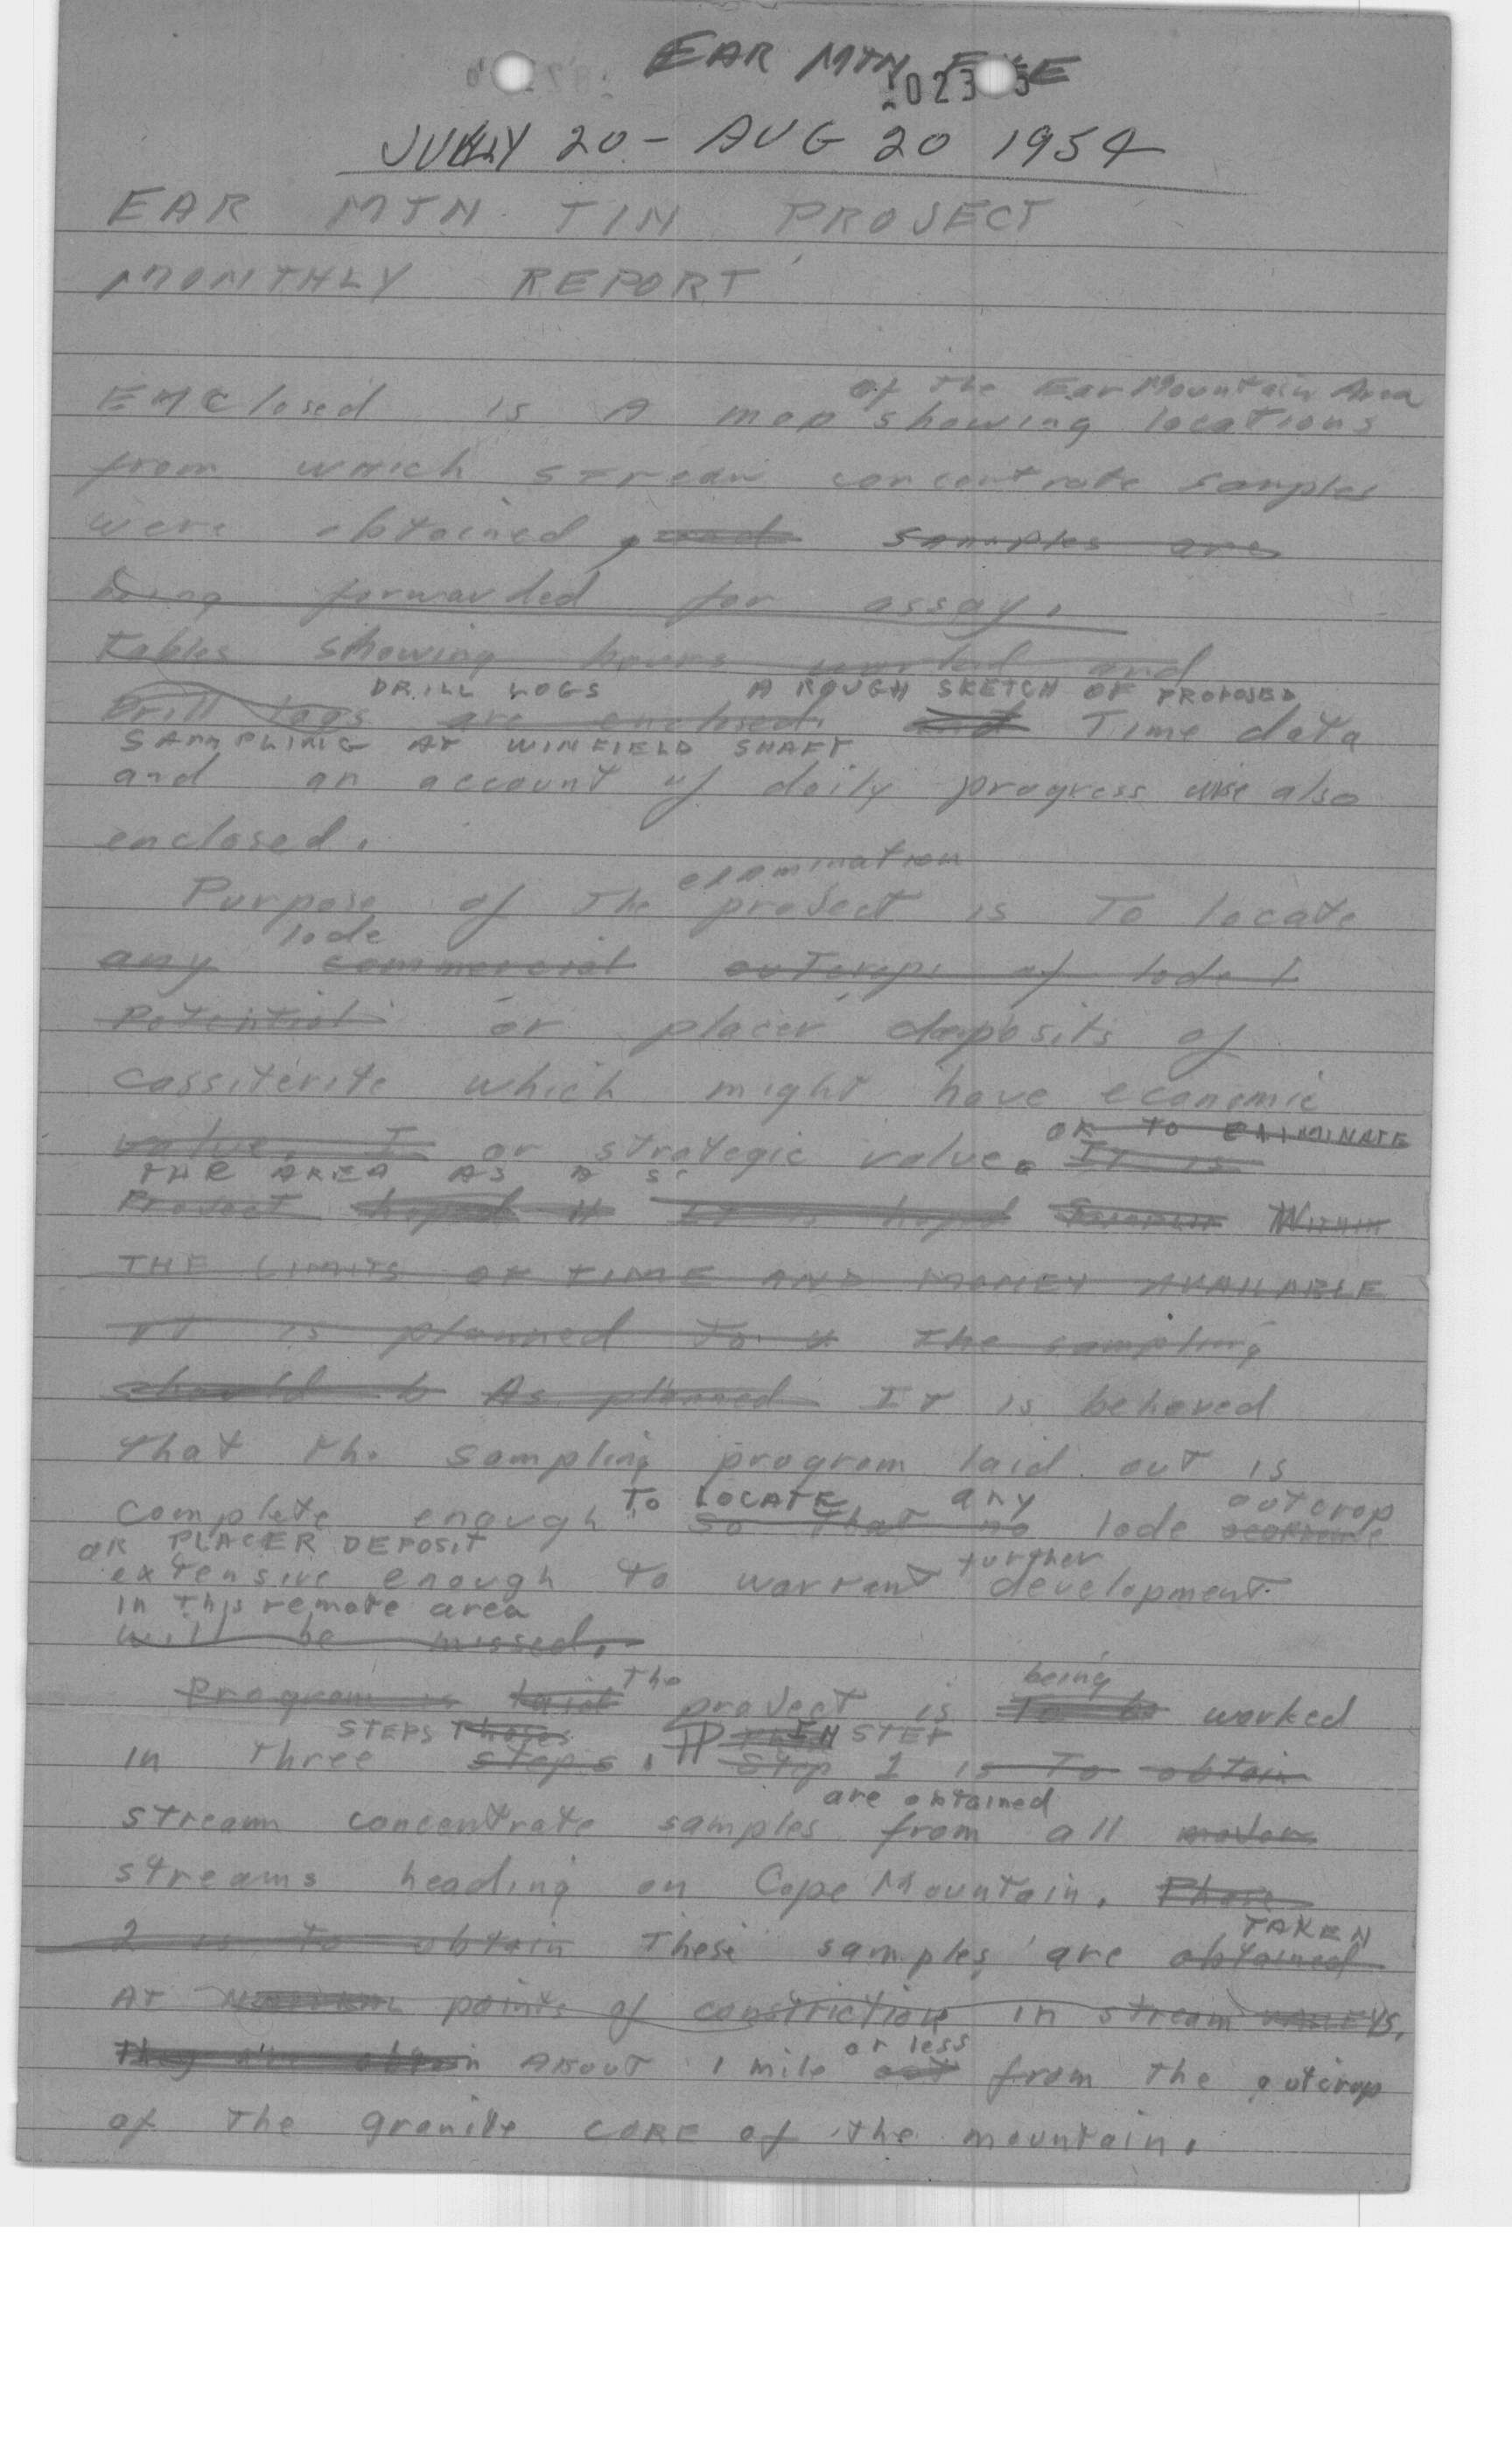 EAR MTN FILE
JULY 20 - AUG 20 1954
EAR MTN TIN PROJECT
MONTHLY REPORT
of the Ear Mountain Area
ENClosed is A map showing locations
from which stream concentrate samples
were obtained, and samples are
being forwarded for assay.
Tables showing hours worked and
DRILL LOGS A ROUGH SKETCH OF PROPOSED
Drill logs are enclosed. and Time data
SAMPLING AT WINFIELD SHAFT
and an account of daily progress are also
enclosed.
examination
Purpose of the project is To locate
lode
any commercial outcrops of lode
Potential or placer deposits of
cassiterite which might have economic
OR TO ELIMINATE
value. I or strategic value. It is
THE AREA AS A
Project hoped it is hoped WITHIN
THE LIMITS OF TIME AND MONEY AVAILABLE
it is planned to the sampling
should b As planned IT is believed
that the sampling program laid out is
TO LOCATE any outcrop
complete enough so that no lode
OR PLACER DEPOSIT
further
extensive enough to warrant development
in this remote area
will be missed.
The being
Program is laid project is To be worked
STEPS Phases IN STEP
in three steps. Step 1 is To obtain
are obtained
stream concentrate samples from all major
streams heading on Cape Mountain. Phase
TAKEN
2 is To obtain These samples are obtained
AT points of constriction in stream VALLEYS.
or less
They are obtain ABOUT 1 mile out from the outcrop
of the granite CORE of the mountain.